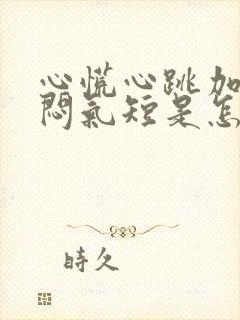 心慌心跳加
悶氣短是怎
時久